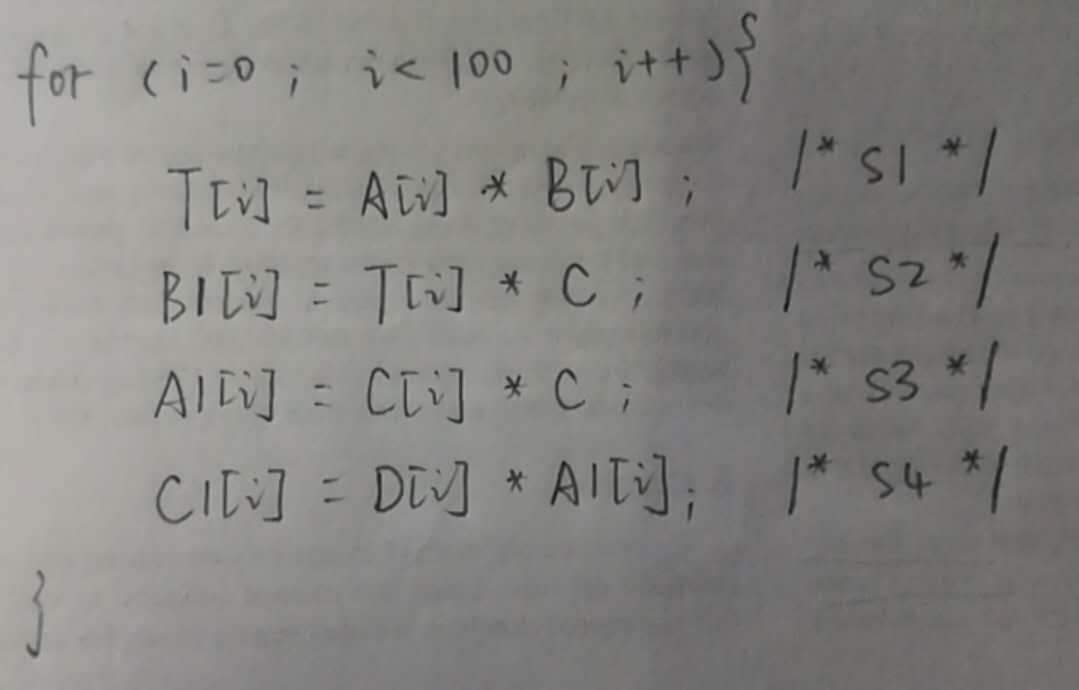 for (i=0; i<100; i++){
T[i] = A[i] * B[i]; /* S1 */
B1[i] = T[i] * C; /* S2 */
A1[i] = C[i] * C; /* S3 */
C1[i] = D[i] * A1[i]; /* S4 */
}